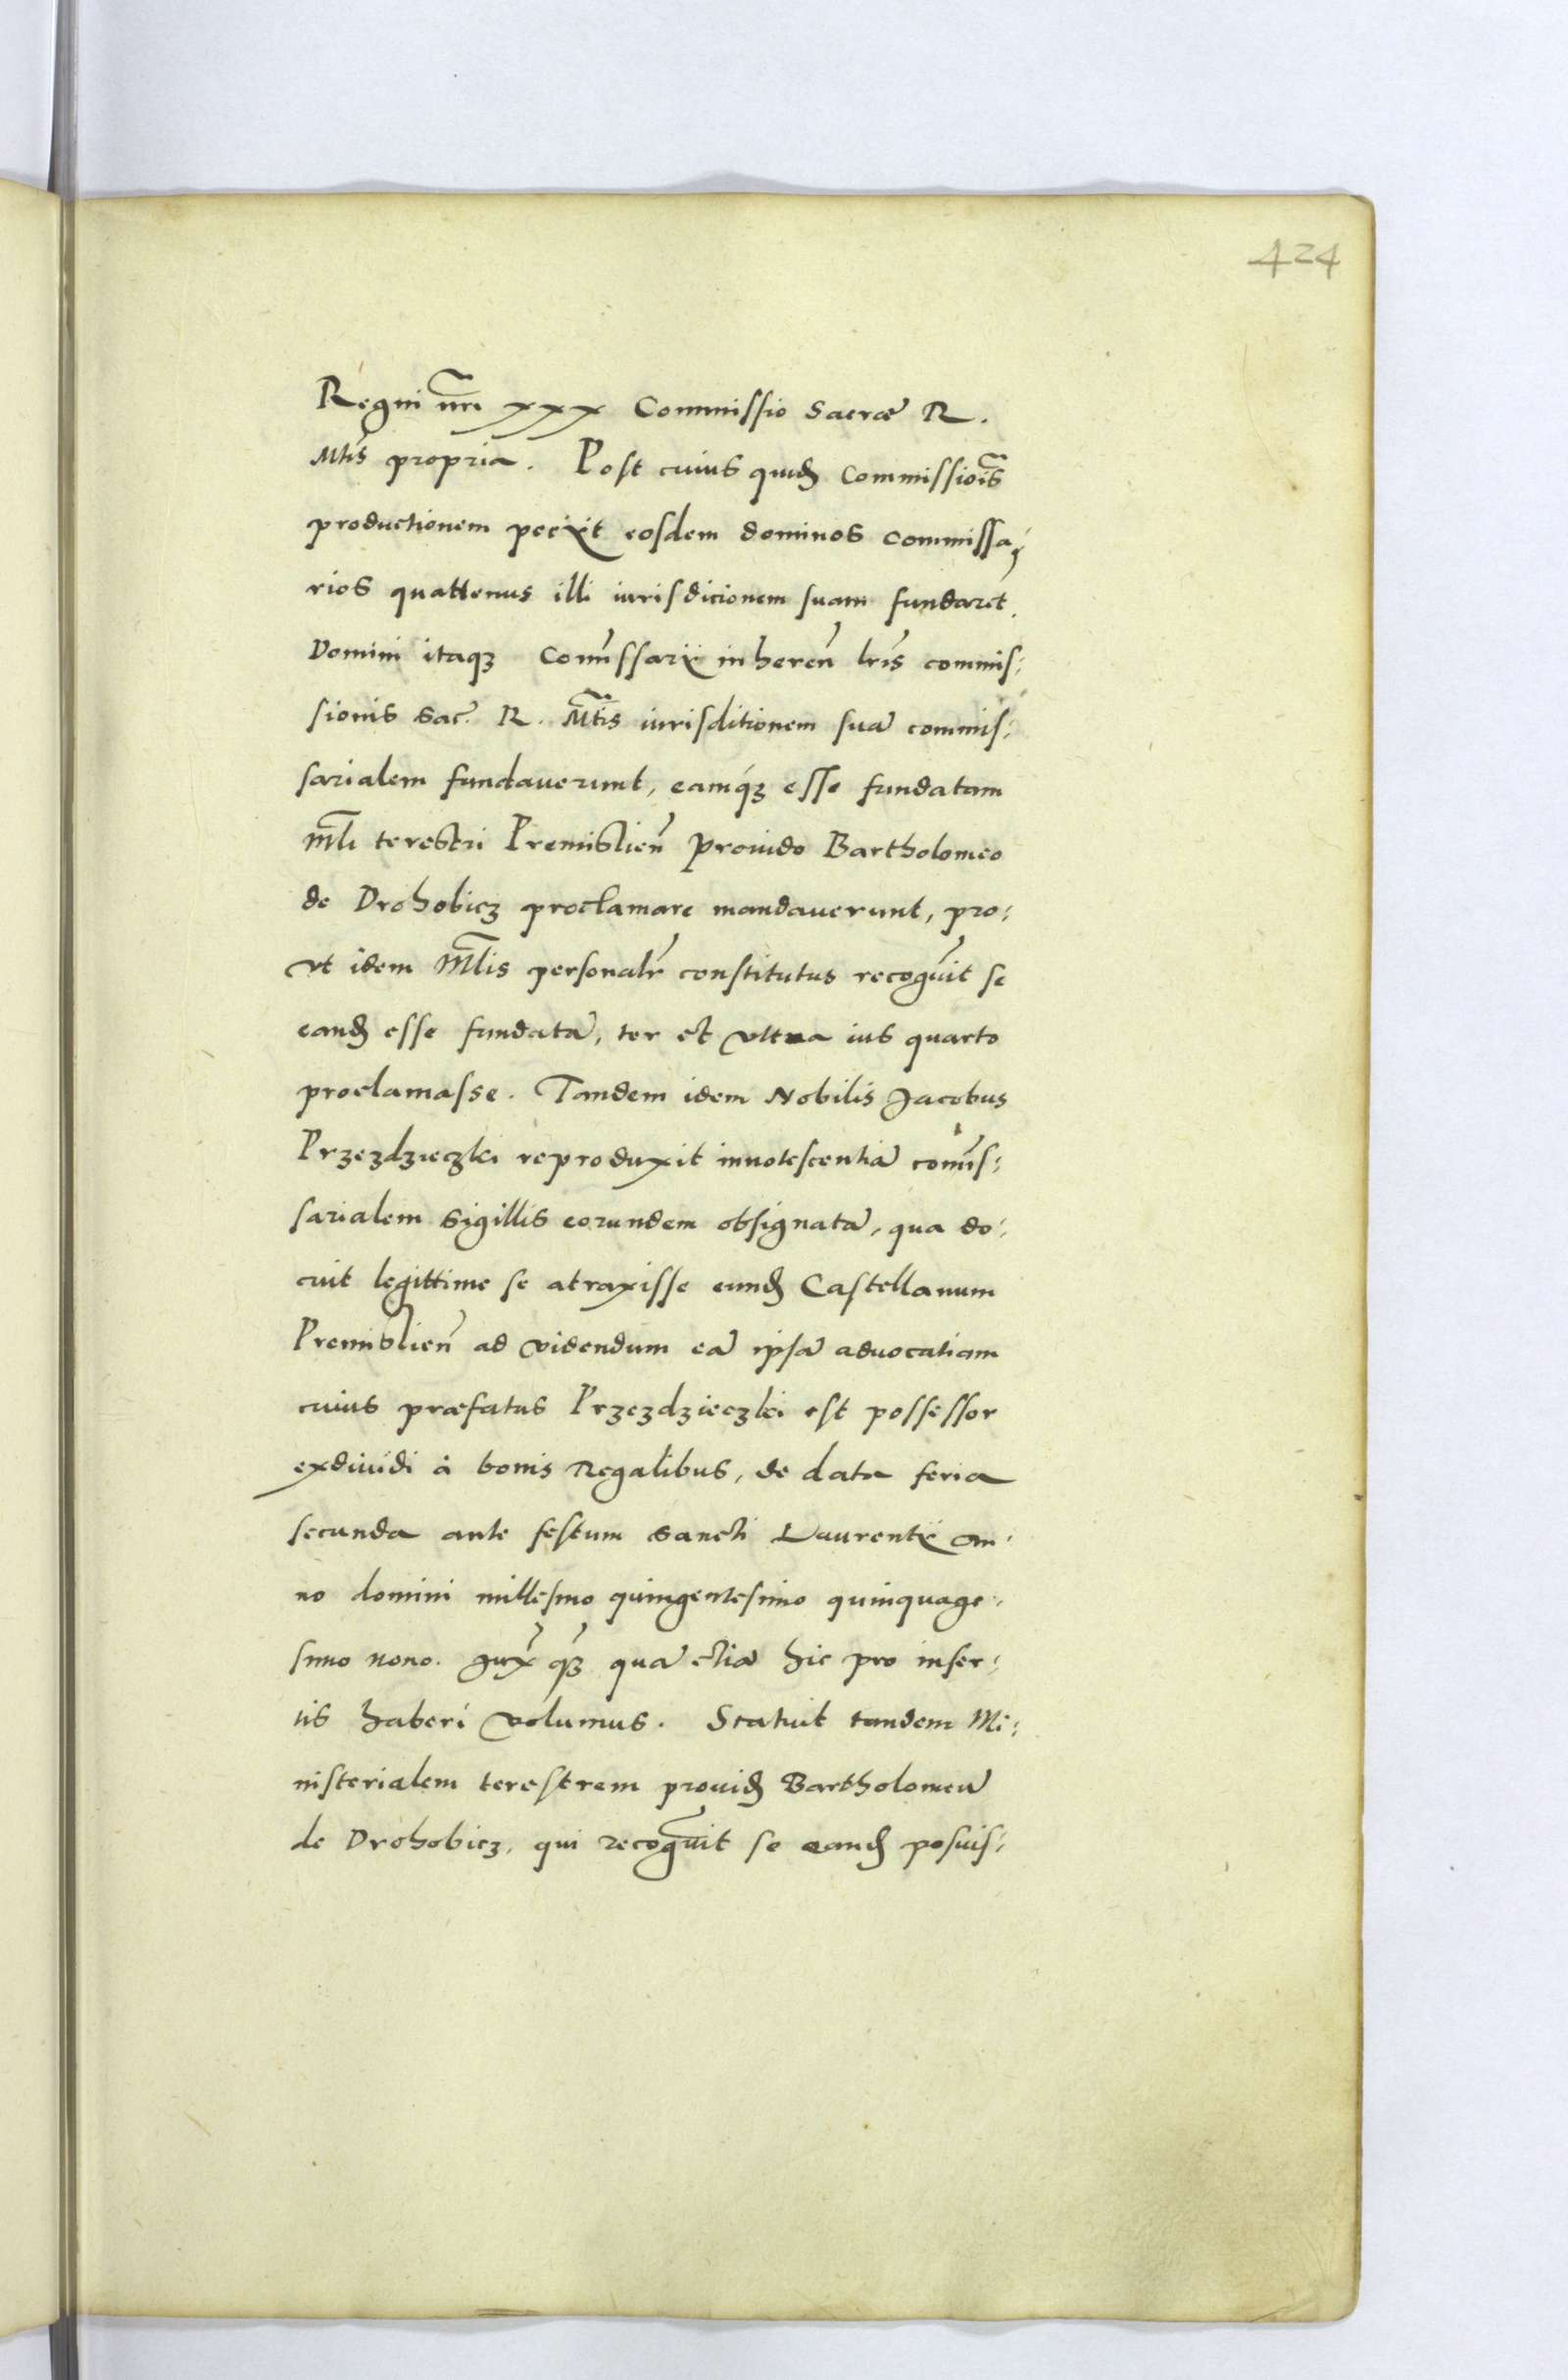 424
Regni nri xxx Commissio Sacrae R.
Mtis propria. Post cuius quid Commissiois
productionem peciit eosdem dominos commissa,
rios quattenus illi iurisdicionem suam fundaret.
Domini itaqȝ Comissarii inheren lris commis:
sionis Sac. R. Mtis iurisditionem sua commis:
sarialem fundaverunt, eamqȝ esse fundatam
Mli terestri Premislien Provido Bartholomeo
de Drohobicz proclamare mandaverunt, pro:
ut idem Mlis personalr constitutus recogvit se
eand esse fundatā, ter et ultra ius quarto
proclamasse. Tandem idem Nobilis Jacobus
Przezdzieczki reproduxit innotescentiā comis:
sarialem sigillis eorundem obsignatā, qua do:
cuit legittime se atraxisse eund Castellanum
Premislien ad videndum eā ipsā advocatiam
cuius praefatus Przezdzieczki est possessor
exdividi à bonis Regalibus, de data feria
secunda ante festum sancti Laurentii an:
no domini millesimo quingentesimo quinquage:
simo nono. quā etiā hic pro inser:
tis haberi volumus. Statuit tandem Mi:
nisterialem terestrem provid Bartholomeū
de Drohobicz, qui recogvit se eand posuis: